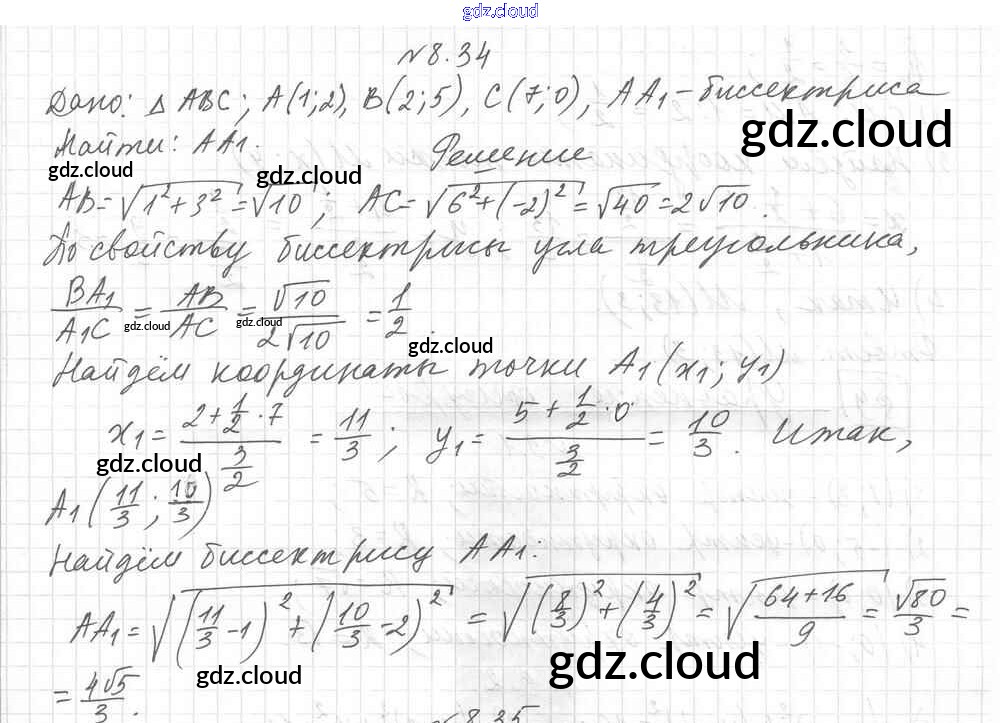 gdz.cloud
№8.34
Дано: △ ABC; A(1;2), B(2;5), C(7;0), AA₁-биссектриса
gdz.cloud
Найти: AA₁. Решение
gdz.cloud gdz.cloud
AB=√(1²+3²)=√10; AC=√(6²+(-2)²)=√40=2√10.
По свойству биссектрисы угла треугольника,
BA₁/A₁C = AB/AC = √10/2√10 = 1/2.
gdz.cloud gdz.cloud gdz.cloud
Найдём координаты точки A₁(x₁; y₁)
x₁= (2+1/2·7)/(3/2) = 11/3; y₁= (5+1/2·0)/(3/2) = 10/3. Итак,
gdz.cloud
A₁(11/3; 10/3)
Найдём биссектрису AA₁:
AA₁=√((11/3-1)²+(10/3-2)²) = √((8/3)²+(4/3)²) = √((64+16)/9) = √80/3 =
gdz.cloud gdz.cloud
= 4√5/3.
№8.35